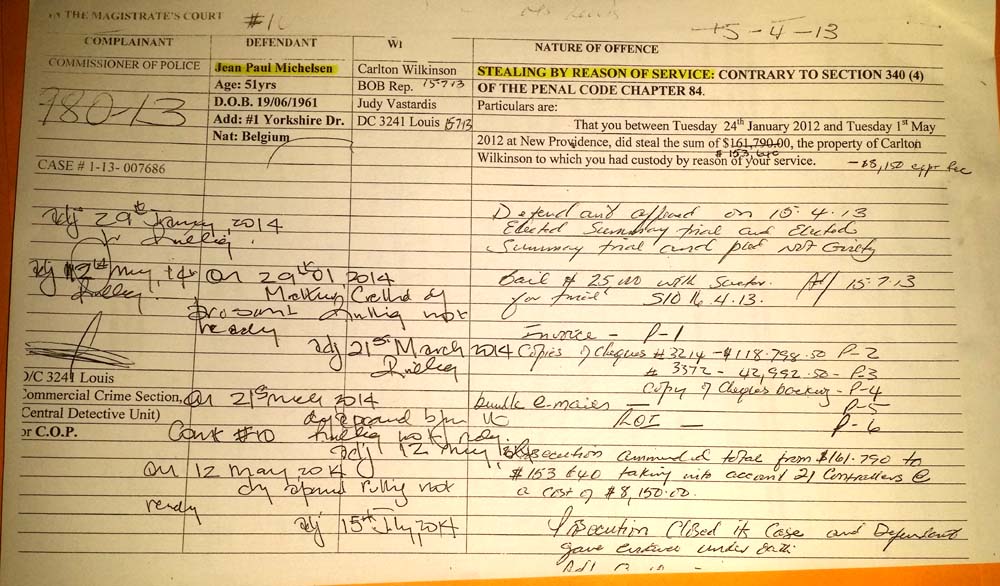 IN THE MAGISTRATE'S COURT
15-4-13
COMPLAINANT
DEFENDANT
WI
NATURE OF OFFENCE
COMMISSIONER OF POLICE
Jean Paul Michelsen
Age: 51yrs
D.O.B. 19/06/1961
Add: #1 Yorkshire Dr.
Nat: Belgium
Carlton Wilkinson
BOB Rep. 15·7·13
Judy Vastardis
DC 3241 Louis 15713
STEALING BY REASON OF SERVICE: CONTRARY TO SECTION 340 (4)
OF THE PENAL CODE CHAPTER 84.
Particulars are:
That you between Tuesday 24th January 2012 and Tuesday 1st May
2012 at New Providence, did steal the sum of $161,790.00, the property of Carlton
$153,640
Wilkinson to which you had custody by reason of your service.
-$8,150
780-13
CASE # 1-13- 007686
adj 29th January, 2014
Ruling.
adj 12th May, 14
Ruling.
On 29th 01 2014
present Ruling not
ready
adj 21st March 2014
Ruling
D/C 3241 Louis
Commercial Crime Section,
Central Detective Unit)
or C.O.P.
On 21st 2014
Court #10 Ruling not rdy.
adj 12 May
On 12 May 2014
ruling not
ready
adj 15th July, 2014
on 15·4·13
Elected Summary trial and Elected
Summary trial and pled Not Guilty
Bail $ 25,000 with 15·7·13
for trial 16.4.13.
Invoice - P-1
Copies of Cheques # 3214 - $118·798·50 P-2
# 3372 - 42,992.50 - P-3
Copy of Cheques backing - P-4
bundle e-mails - P-5
ROI - P-6
Prosecution ammended total from $161.790 to
$153 640 taking into account 21 Controllers @
a cost of $8,150.00.
Prosecution Closed its Case and Defendant
gave evidence under oath.